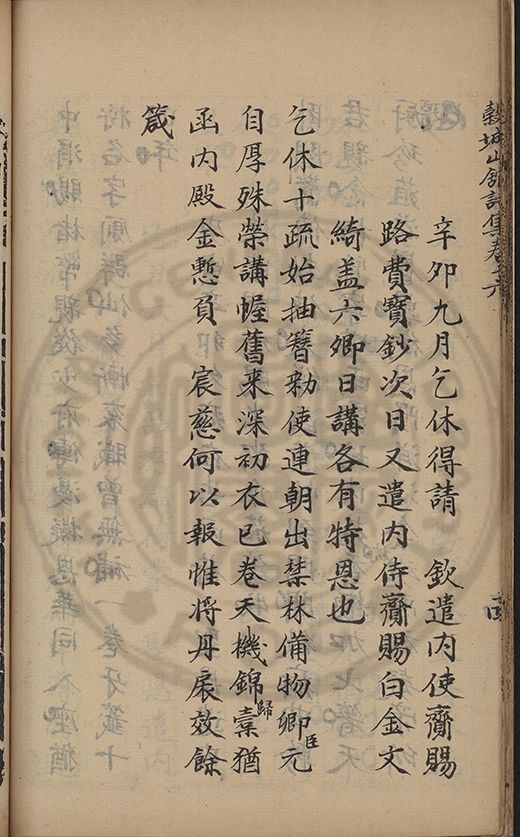 穀城山館詩集卷十六
辛卯九月乞休得請 欽遣内使齎賜
路費寶鈔次日又遣内侍齎賜白金文
綺盖六卿日講各有特恩也
乞休十疏始抽簪勅使連朝出禁林備物卿臣元
自厚殊榮講幄舊来深初衣已卷天機錦歸橐猶
函内殿金慙負 宸慈何以報惟将丹扆效餘
箴